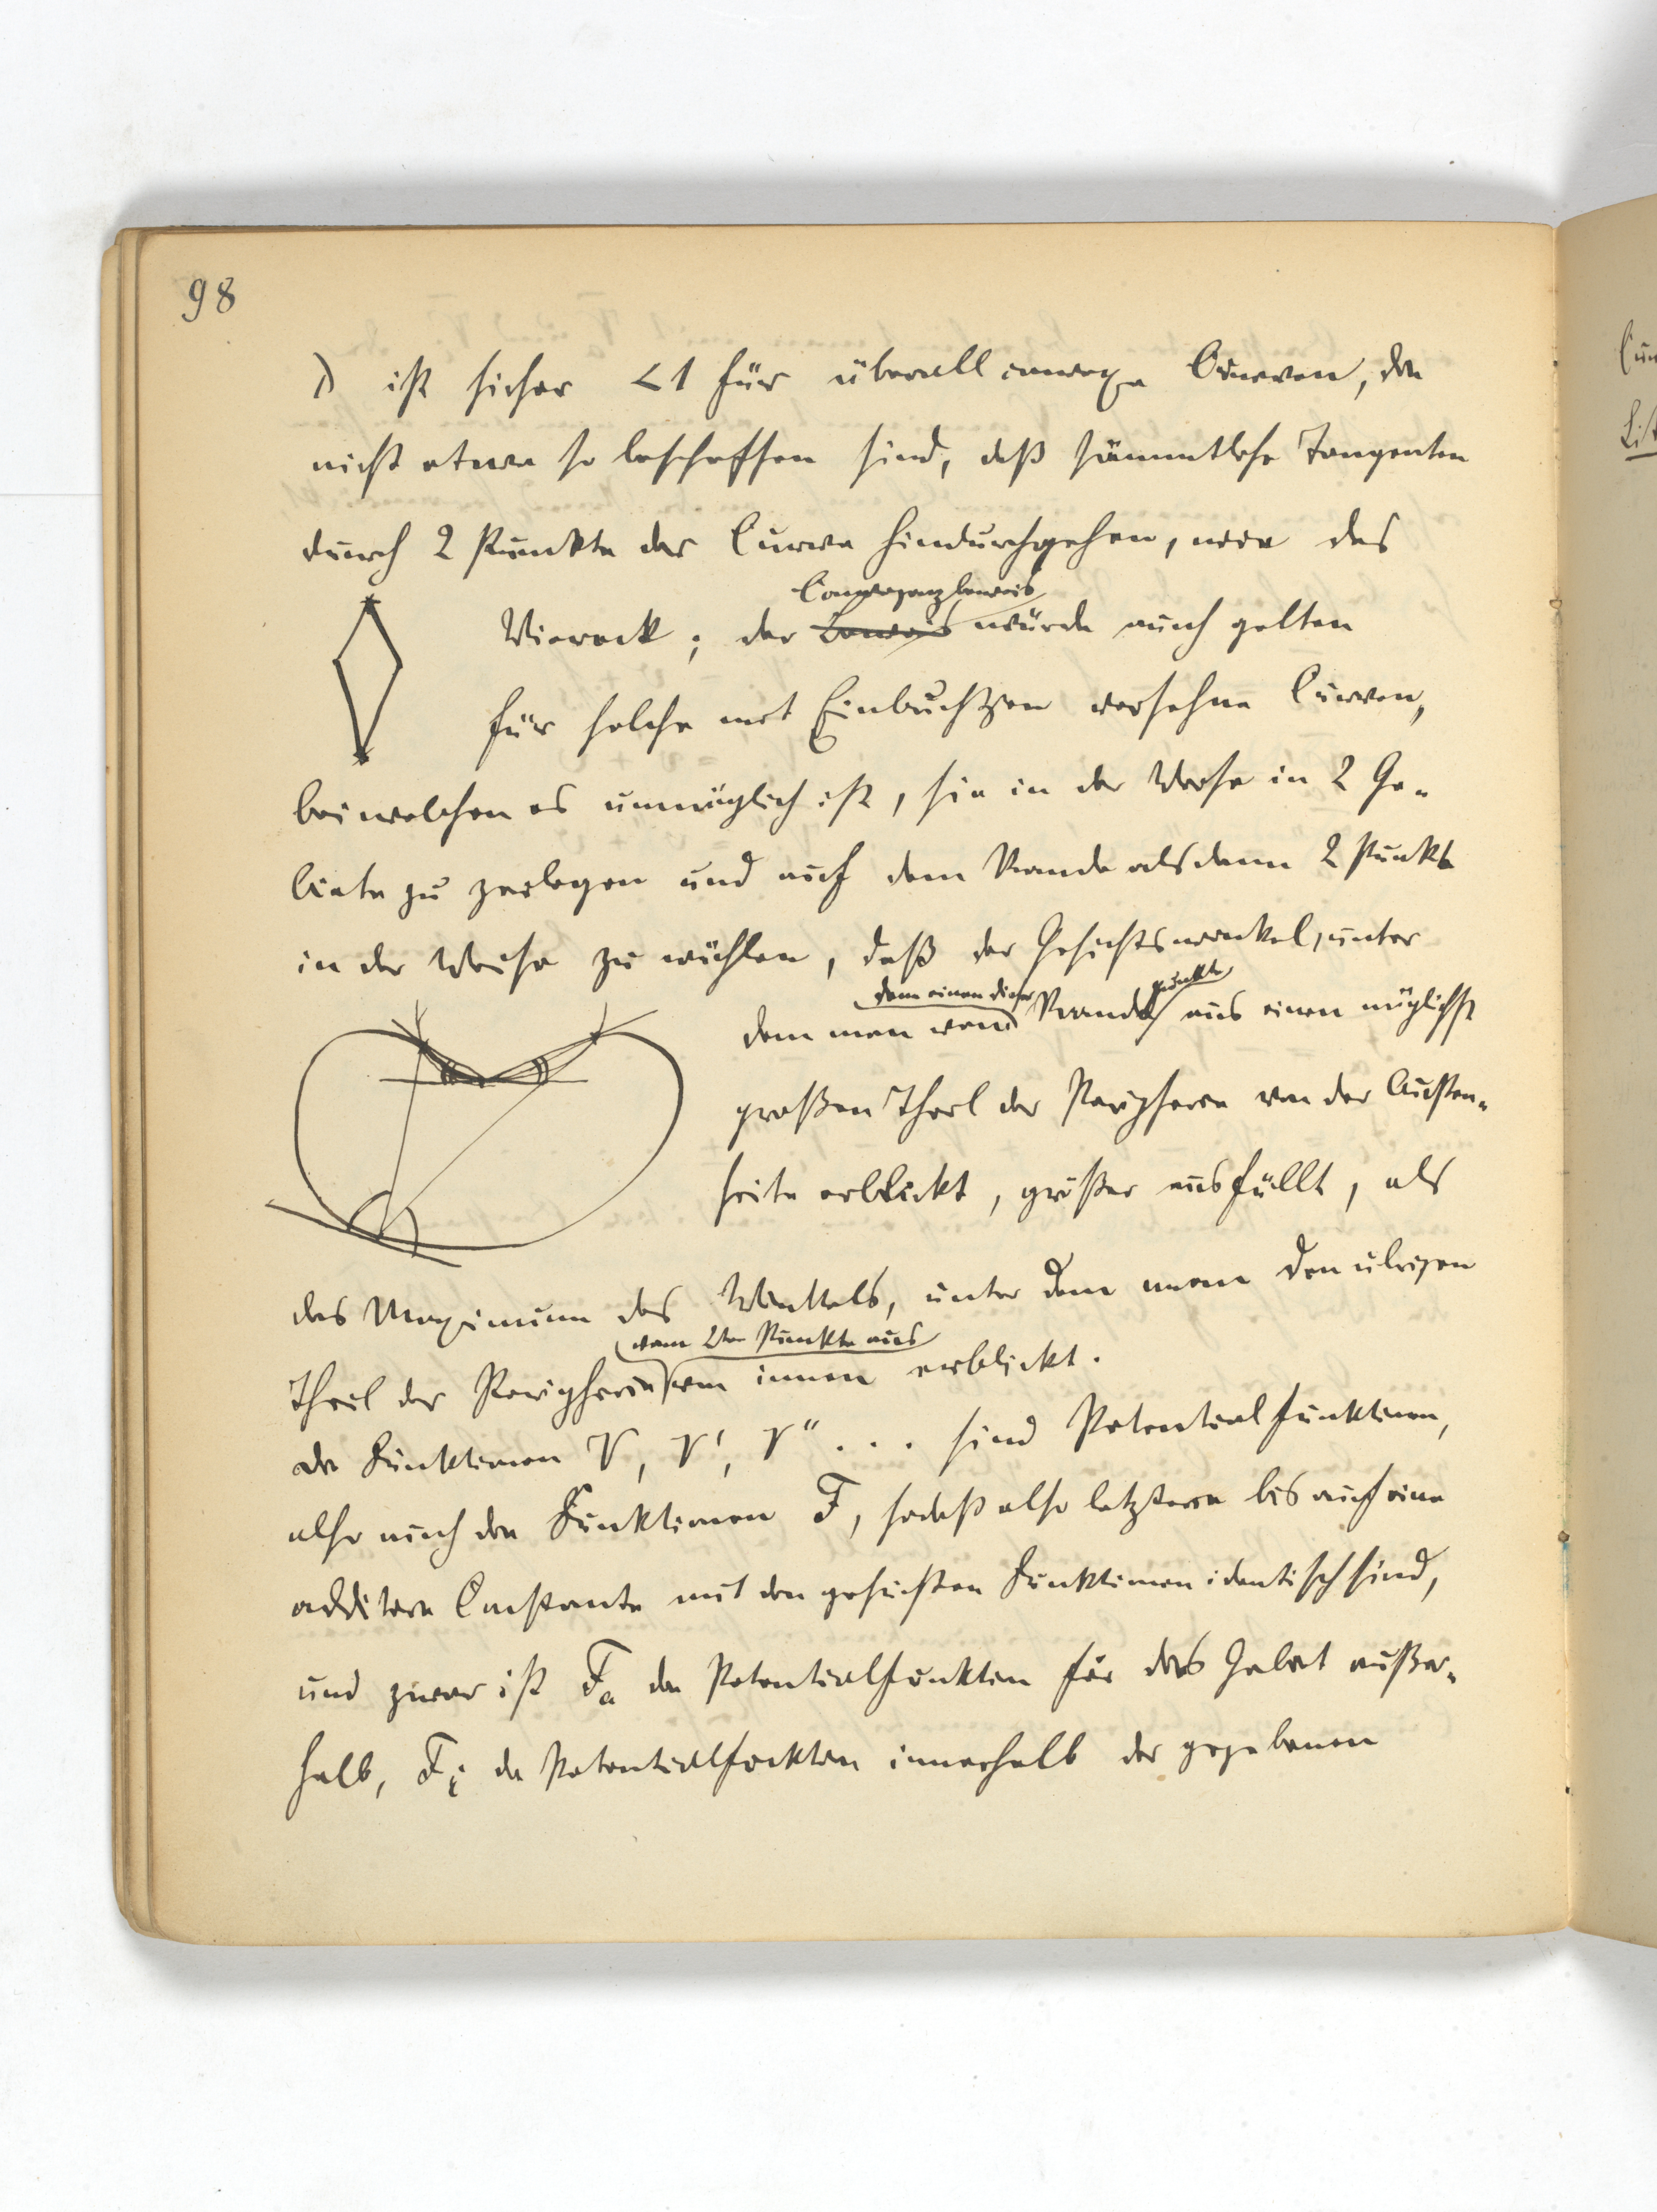 98
λ ist sicher < 1 für überall convexe Curven, die
nicht etwa so beschaffen sind, daß sämmtliche Tangenten
durch 2 Punkte der Curve hindurchgehen, wie das
Convergenzbeweis
Viereck; der Beweis würde auch gelten
für solche mit Einbuchtgen versehne Curven,
bei welchen es unmöglich ist, sie in der Weise in 2 Ge-
biete zu zerlegen und auf dem Rande alsdann 2 Punkte
in der Weise zu wählen, daß der Gesichtswinkel, unter
dem einen dieser punkte
dem man von Rand aus einen möglichst
großen Theil der Peripherie von der Außen-
seite erblickt, größer ausfällt, als
das Maximum des Winkels, unter dem man den übrigen
vom 2ten Punkte aus
Theil der Peripherie von innen erblickt.
Die Funktionen V, V', V'' . . . sind Potentialfunktionen,
also auch die Funktionen F, sodaß also letztere bis auf eine
additive Constante mit den gesuchten Funktionen identisch sind,
und zwar ist Fa die Potentialfunktion für das Gebiet außer-
halb, Fi die Potentialfunktion innerhalb der gegebenen